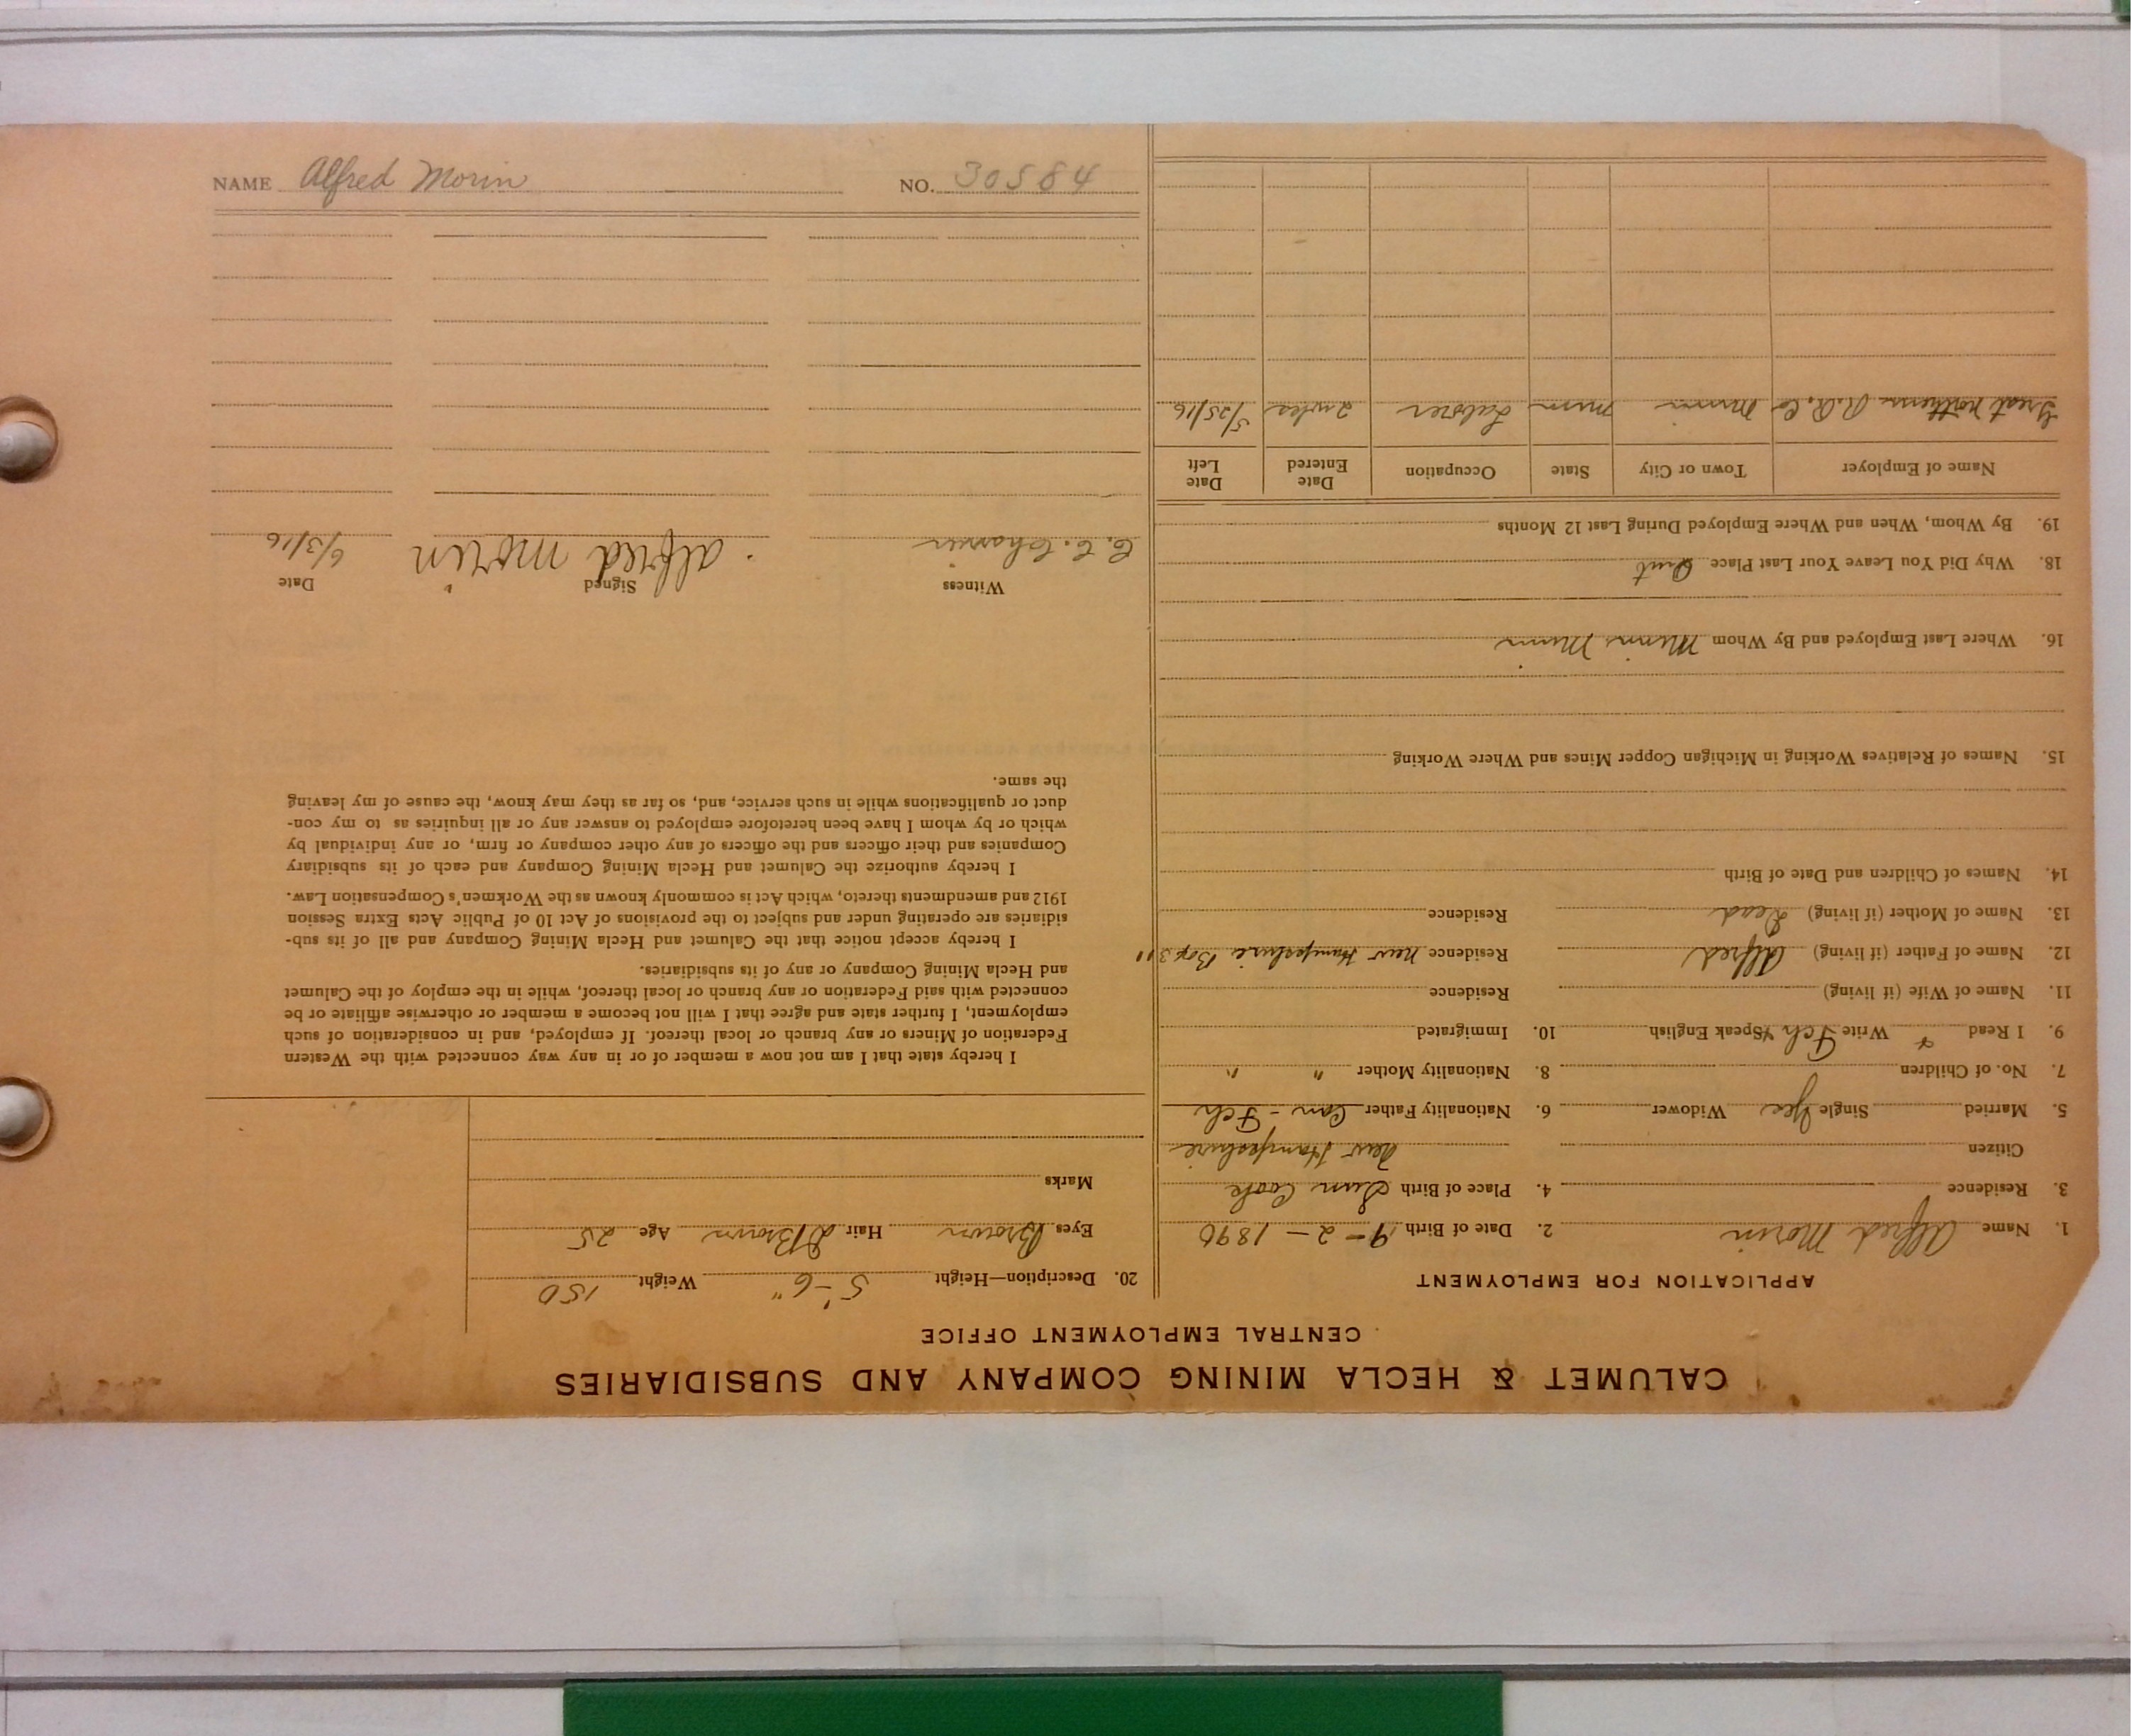 CALUMET & HECLA MINING COMPANY AND SUBSIDIARIES
CENTRAL EMPLOYMENT OFFICE
APPLICATION FOR EMPLOYMENT
1. Name Alfred Morin 2. Date of Birth 9 - 2 - 1890
3. Residence 4. Place of Birth Sun Cook
Citizen New Hampshire
5. Married Single Yes Widower 6. Nationality Father Can - Fch
7. No. of Children 8. Nationality Mother " "
9. I Read & Write Fch & Speak English 10. Immigrated
11. Name of Wife (if living) Residence
12. Name of Father (if living) Alfred Residence New Hampshire Box 311
13. Name of Mother (if living) Dead Residence
14. Names of Children and Date of Birth
15. Names of Relatives Working in Michigan Copper Mines and Where Working
16. Where Last Employed and By Whom Minn
18. Why Did You Leave Your Last Place Quit
19. By Whom, When and Where Employed During Last 12 Months
Name of Employer Town or City State Occupation Date Entered Date Left
Great Northern R.R. Co Minn Minn Laborer 2 wks 5/25/16
20. Description—Height 5'-6" Weight 150
Eyes Brown Hair D Brown Age 25
Marks
I hereby state that I am not now a member of or in any way connected with the Western
Federation of Miners or any branch or local thereof. If employed, and in consideration of such
employment, I further state and agree that I will not become a member or otherwise affiliate or be
connected with said Federation or any branch or local thereof, while in the employ of the Calumet
and Hecla Mining Company or any of its subsidiaries.
I hereby accept notice that the Calumet and Hecla Mining Company and all of its sub-
sidiaries are operating under and subject to the provisions of Act 10 of Public Acts Extra Session
1912 and amendments thereto, which Act is commonly known as the Workmen's Compensation Law.
I hereby authorize the Calumet and Hecla Mining Company and each of its subsidiary
Companies and their officers and the officers of any other company or firm, or any individual by
which or by whom I have been heretofore employed to answer any or all inquiries as to my con-
duct or qualifications while in such service, and, so far as they may know, the cause of my leaving
the same.
Witness Signed Date
C. C. alfred morin 6/3/16
NAME Alfred Morin NO. 30584